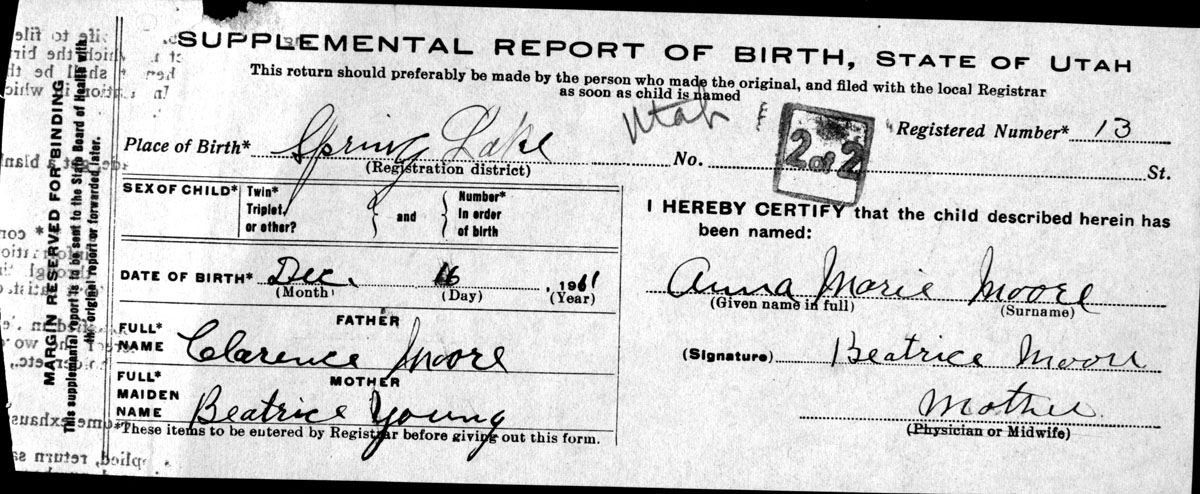 SUPPLEMENTAL REPORT OF BIRTH, STATE OF UTAH
This return should preferably be made by the person who made the original, and filed with the local Registrar
as soon as child is named
Utah
2 of 2
Registered Number* 13
Place of Birth* Spring Lake No. St.
(Registration district)
SEX OF CHILD* Twin* Triplet, or other? and Number* in order of birth
DATE OF BIRTH* Dec. 16, 1911
(Month) (Day) (Year)
FATHER
FULL* NAME Clarence Moore
MOTHER
FULL* MAIDEN NAME Beatrice Young
*These items to be entered by Registrar before giving out this form.
I HEREBY CERTIFY that the child described herein has
been named:
Anna Marie Moore
(Given name in full) (Surname)
(Signature) Beatrice Moore
Mother
(Physician or Midwife)
MARGIN RESERVED FOR BINDING
This supplemental report is to be sent to the State Board of Health with
the original report or forwarded later.